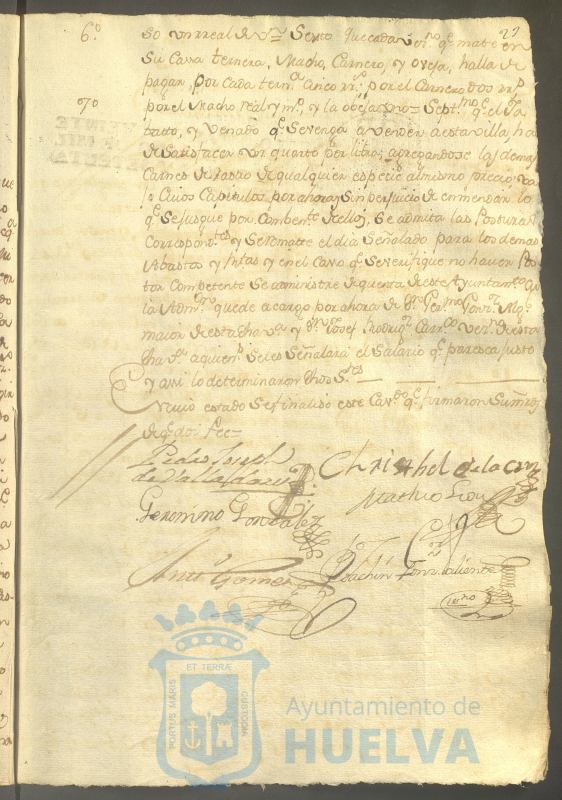 6.º
27
do un real de V.ºⁿ Sexto que cada Vez.ⁿᵒ q.ᵉ mate en
su Cassa ternera, Macho, Carnero, y oveja, halla de
pagar, Por cada tern.ᵃ Cinco rr.ˢ por el Carnero dos rr.ˢ
7.º
por el Macho real y m.º, y la oveja uno= Sept.ᵐᵒ q.ᵉ el
, y Venado q.ᵉ se venga a vender a esta Villa ha
de satisfacer un quarto por libra; agregandose las demas
Carnes de rastro de qualquier especie al mismo precio;
Cuios Capitulos por ahora y sin perjuicio de enmendar lo
q.ᵉ se jusgue por comben.ᵗᵉ de ellos, se admita las Posturas
Correspon.ᵗᵉˢ y se remate el dia señalado para los demas
Abastos y Rentas y en el Caso q.ᵉ se verifique no haver Pos
tor Competente se administre de quenta de este Ayuntam.ᵗᵒ
la Adm.ᵒⁿ quede a cargo por ahora de
maior de esta dha V.ᵃ y d.ⁿ Josef Rodrig.ᶻ Vez.º de esta
dha V.ᵃ a quien.ˢ se les señalará el Salario q.ᵉ paresca justo
y assi lo determinaron dhos S.ʳᵉˢ
En cuio estado se finalisó este Cav.ᵈᵒ q.ᵉ firmaron Sus m.ᵈᵉˢ
de q.ᵉ doi fee=
Pedro Joseph
de Valladares
Christobal de la Cruz
Geronimo Gonzalez
Joachin Gonz. Valiente
Ant.º Gomez
PORTUS MARIS
ET TERRÆ
CUSTODIA
Ayuntamiento de
HUELVA